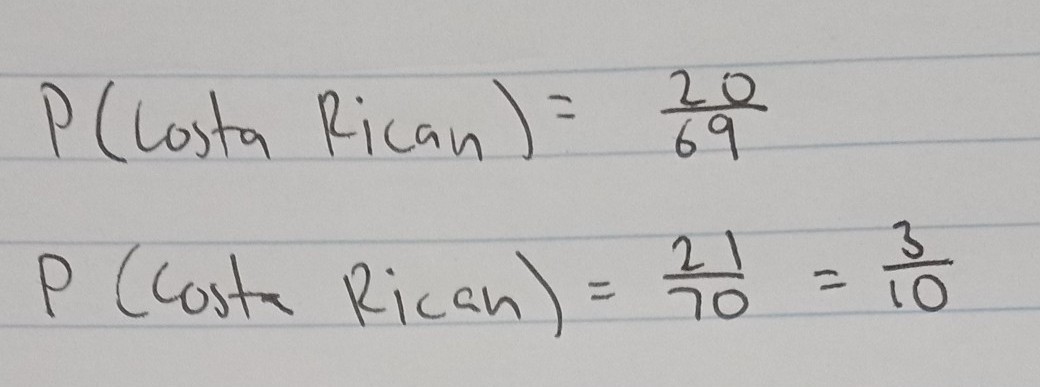 P(Costa Rican) = 20/69
P (Costa Rican) = 21/70 = 3/10